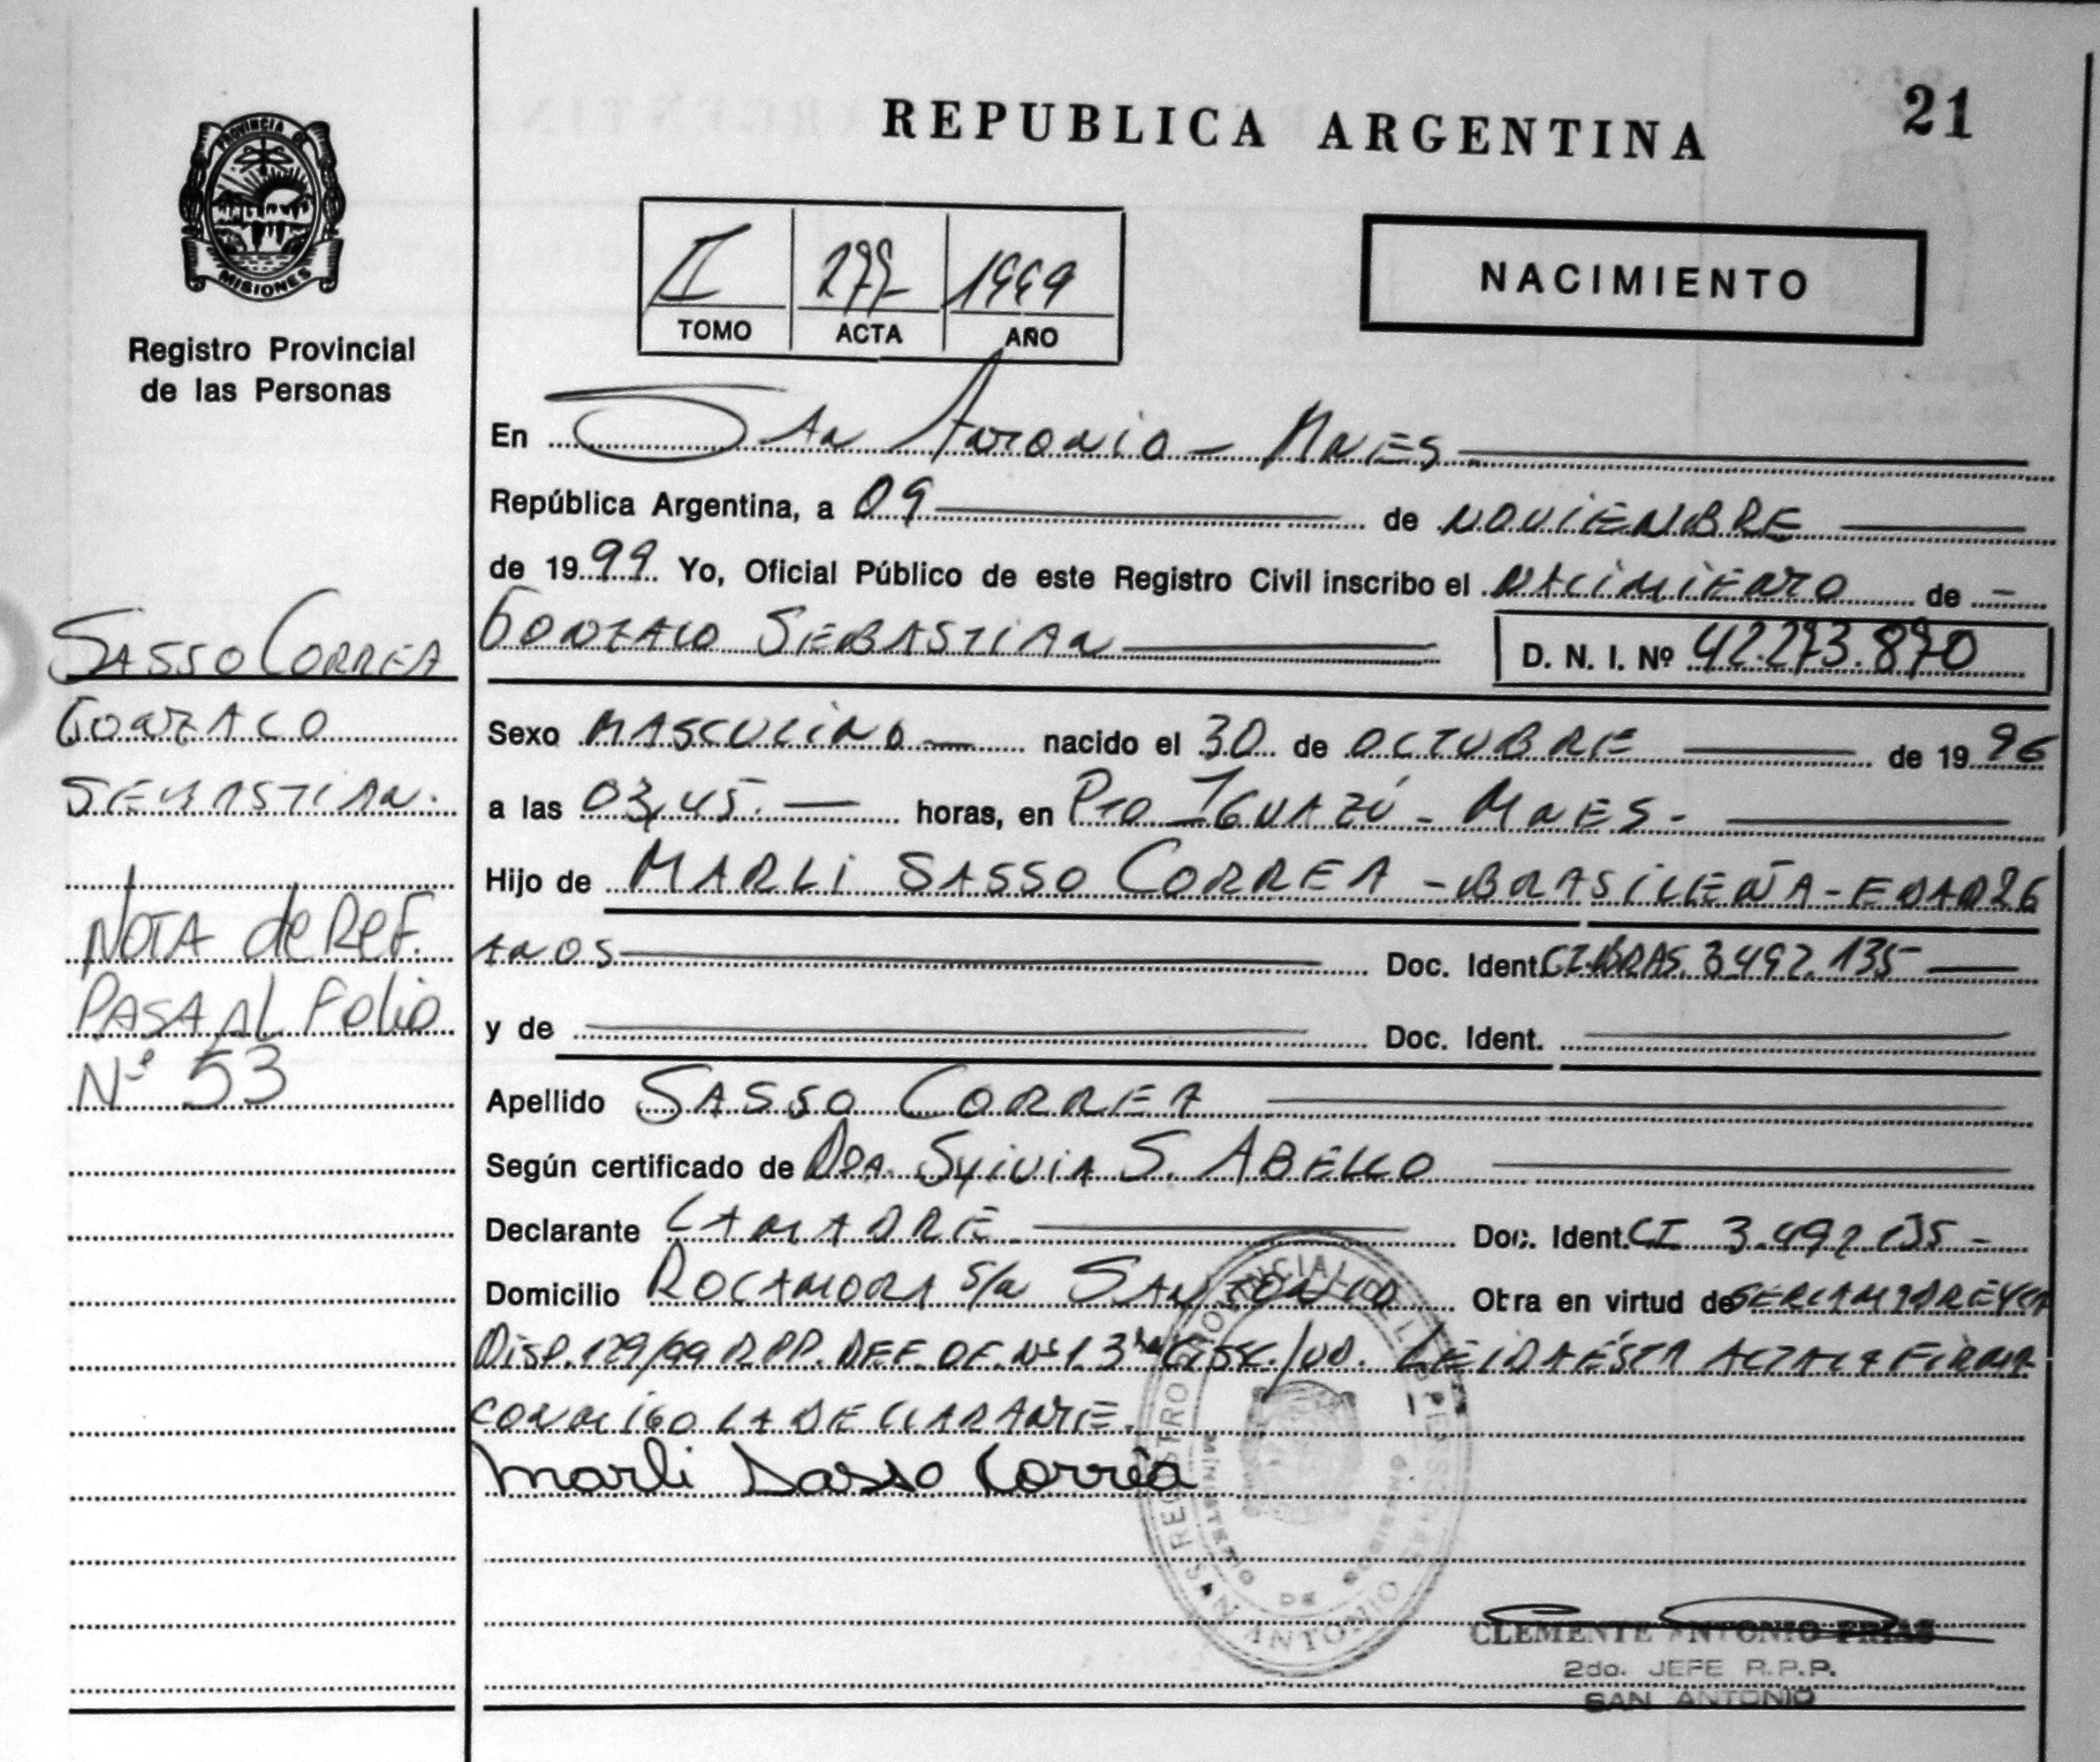 REPUBLICA ARGENTINA
21
PROVINCIA DE
MISIONES
Registro Provincial
de las Personas
II 277 1999
TOMO ACTA AÑO
NACIMIENTO
En San Antonio - Mnes
República Argentina, a 09 de NOVIEMBRE
de 1999 Yo, Oficial Público de este Registro Civil inscribo el NACIMIENTO de -
GONZALO SEBASTIAN D. N. I. Nº 42.273.870
Sexo MASCULINO nacido el 30 de OCTUBRE de 1996
a las 03,45. horas, en Pto IGUAZÚ - MNES-
Hijo de MARLI SASSO CORREA - BRASILEÑA - EDAD 26
AÑOS Doc. Ident. CI.BRAS. 3.492.135
y de Doc. Ident.
Apellido SASSO CORREA
Según certificado de DRA. SYLVIA S. ABELLO
Declarante LA MADRE Doc. Ident. CI 3.492.135 -
Domicilio ROCAMORA s/n SAN ANTONIO Otra en virtud de SER LA MADRE Y LA
DISP. 129/99 R.P.P. DEF. OF. Nº 1. 3ra LEIDA ÉSTA ACTA LA FIRMA
CONMIGO LA DECLARANTE.
Marli Sasso Corrêa
SASSO CORREA
GONZALO
SEBASTIAN.
NOTA de REF.
PASA AL FOLIO
Nº 53
REGISTRO PROVINCIAL DE LAS PERSONAS
MINISTERIO DE GOBIERNO
SAN ANTONIO
CLEMENTE ANTONIO FRIAS
2do. JEFE R.P.P.
SAN ANTONIO